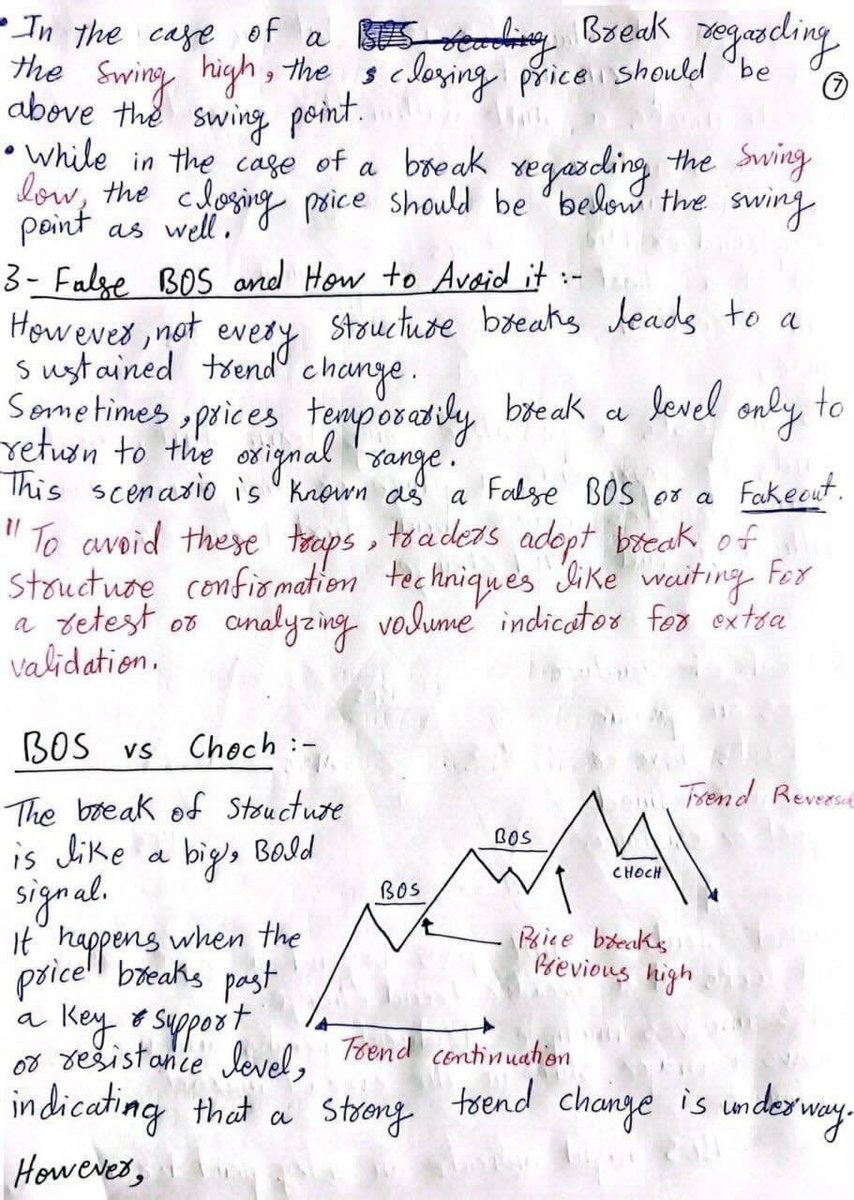 • In the case of a Break regarding
the swing high, the closing price should be
above the swing point.
⑦
• While in the case of a break regarding the swing
low, the closing price should be below the swing
point as well.
3- False BOS and How to Avoid it :-
However, not every structure breaks leads to a
sustained trend change.
Sometimes, prices temporarily break a level only to
return to the orignal range.
This scenario is known as a False BOS or a Fakeout.
" To avoid these traps, traders adopt break of
structure confirmation techniques like waiting For
a retest or analyzing volume indicator for extra
validation.
BOS vs Choch :-
The break of structure
is like a big, Bold
signal.
It happens when the
price breaks past
a key support
or resistance level,
indicating that a strong trend change is underway.
However,
BOS
BOS
CHOCH
Trend Reversal
Price breaks
Previous high
Trend continuation